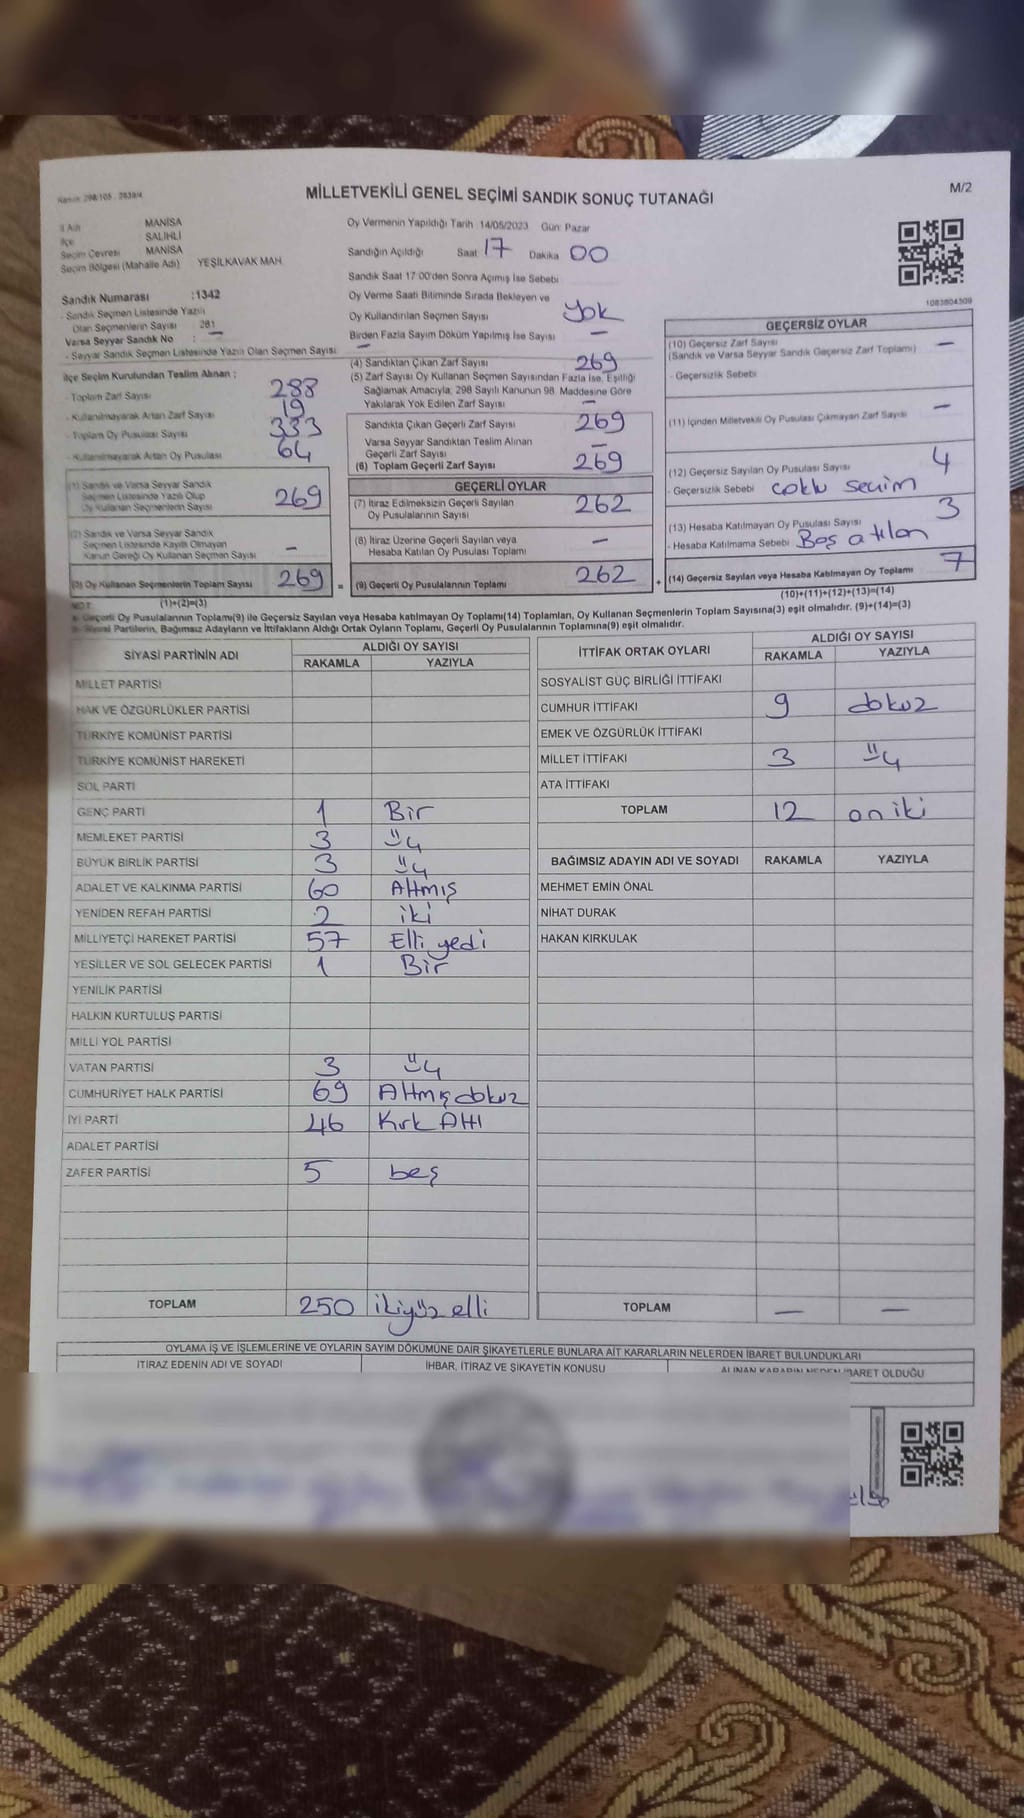 Kanun: 298/105 - 2839/4
MİLLETVEKİLİ GENEL SEÇİMİ SANDIK SONUÇ TUTANAĞI
M/2
İl Adı MANİSA
İlçe SALİHLİ
Seçim Çevresi MANİSA
Seçim Bölgesi (Mahalle Adı) YEŞİLKAVAK MAH.
Sandık Numarası :1342
- Sandık Seçmen Listesinde Yazılı
Olan Seçmenlerin Sayısı 281
Varsa Seyyar Sandık No : —
- Seyyar Sandık Seçmen Listesinde Yazılı Olan Seçmen Sayısı : —
İlçe Seçim Kurulundan Teslim Alınan :
- Toplam Zarf Sayısı 288
- Kullanılmayarak Artan Zarf Sayısı 19
- Toplam Oy Pusulası Sayısı 333
- Kullanılmayarak Artan Oy Pusulası 64
(1) Sandık ve Varsa Seyyar Sandık
Seçmen Listesinde Yazılı Olup
Oy Kullanan Seçmenlerin Sayısı 269
(2) Sandık ve Varsa Seyyar Sandık
Seçmen Listesinde Kayıtlı Olmayan
Kanun Gereği Oy Kullanan Seçmen Sayısı —
(3) Oy Kullanan Seçmenlerin Toplam Sayısı 269 =
(1)+(2)=(3)
Oy Vermenin Yapıldığı Tarih 14/05/2023 Gün: Pazar
Sandığın Açıldığı Saat 17 Dakika 00
Sandık Saat 17:00'den Sonra Açımış İse Sebebi
Oy Verme Saati Bitiminde Sırada Bekleyen ve
Oy Kullandırılan Seçmen Sayısı Yok
Birden Fazla Sayım Döküm Yapılmış İse Sayısı —
(4) Sandıktan Çıkan Zarf Sayısı 269
(5) Zarf Sayısı Oy Kullanan Seçmen Sayısından Fazla İse, Eşitliği
Sağlamak Amacıyla; 298 Sayılı Kanunun 98. Maddesine Göre
Yakılarak Yok Edilen Zarf Sayısı —
Sandıkta Çıkan Geçerli Zarf Sayısı 269
Varsa Seyyar Sandıktan Teslim Alınan
Geçerli Zarf Sayısı —
(6) Toplam Geçerli Zarf Sayısı 269
GEÇERLİ OYLAR
(7) İtiraz Edilmeksizin Geçerli Sayılan
Oy Pusulalarının Sayısı 262
(8) İtiraz Üzerine Geçerli Sayılan veya
Hesaba Katılan Oy Pusulası Toplamı —
(9) Geçerli Oy Pusulalarının Toplamı 262 +
1083804309
GEÇERSİZ OYLAR
(10) Geçersiz Zarf Sayısı —
(Sandık ve Varsa Seyyar Sandık Geçersiz Zarf Toplamı)
- Geçersizlik Sebebi
(11) İçinden Milletvekili Oy Pusulası Çıkmayan Zarf Sayısı —
(12) Geçersiz Sayılan Oy Pusulası Sayısı 4
- Geçersizlik Sebebi çoklu seçim
(13) Hesaba Katılmayan Oy Pusulası Sayısı 3
- Hesaba Katılmama Sebebi Boş atılan
(14) Geçersiz Sayılan veya Hesaba Katılmayan Oy Toplamı 7
(10)+(11)+(12)+(13)=(14)
NOT:
a- Geçerli Oy Pusulalarının Toplamı(9) ile Geçersiz Sayılan veya Hesaba katılmayan Oy Toplamı(14) Toplamları, Oy Kullanan Seçmenlerin Toplam Sayısına(3) eşit olmalıdır. (9)+(14)=(3)
b- Siyasi Partilerin, Bağımsız Adayların ve İttifakların Aldığı Ortak Oyların Toplamı, Geçerli Oy Pusulalarının Toplamına(9) eşit olmalıdır.
SİYASİ PARTİNİN ADI ALDIĞI OY SAYISI
RAKAMLA YAZIYLA
MİLLET PARTİSİ
HAK VE ÖZGÜRLÜKLER PARTİSİ
TÜRKİYE KOMÜNİST PARTİSİ
TÜRKİYE KOMÜNİST HAREKETİ
SOL PARTİ
GENÇ PARTİ 1 Bir
MEMLEKET PARTİSİ 3 üç
BÜYÜK BİRLİK PARTİSİ 3 üç
ADALET VE KALKINMA PARTİSİ 60 Altmış
YENİDEN REFAH PARTİSİ 2 iki
MİLLİYETÇİ HAREKET PARTİSİ 57 Elli yedi
YEŞİLLER VE SOL GELECEK PARTİSİ 1 Bir
YENİLİK PARTİSİ
HALKIN KURTULUŞ PARTİSİ
MİLLİ YOL PARTİSİ
VATAN PARTİSİ 3 üç
CUMHURİYET HALK PARTİSİ 69 Altmış dokuz
İYİ PARTİ 46 Kırk Altı
ADALET PARTİSİ
ZAFER PARTİSİ 5 beş
TOPLAM 250 ikiyüz elli
İTTİFAK ORTAK OYLARI ALDIĞI OY SAYISI
RAKAMLA YAZIYLA
SOSYALİST GÜÇ BİRLİĞİ İTTİFAKI
CUMHUR İTTİFAKI 9 dokuz
EMEK VE ÖZGÜRLÜK İTTİFAKI
MİLLET İTTİFAKI 3 üç
ATA İTTİFAKI
TOPLAM 12 on iki
BAĞIMSIZ ADAYIN ADI VE SOYADI RAKAMLA YAZIYLA
MEHMET EMİN ÖNAL
NİHAT DURAK
HAKAN KIRKULAK
TOPLAM — —
OYLAMA İŞ VE İŞLEMLERİNE VE OYLARIN SAYIM DÖKÜMÜNE DAİR ŞİKAYETLERLE BUNLARA AİT KARARLARIN NELERDEN İBARET BULUNDUKLARI
İTİRAZ EDENİN ADI VE SOYADI İHBAR, İTİRAZ VE ŞİKAYETİN KONUSU ALINAN KARARIN NEDEN İBARET OLDUĞU